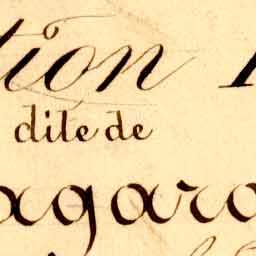 tion
dite de
agaro